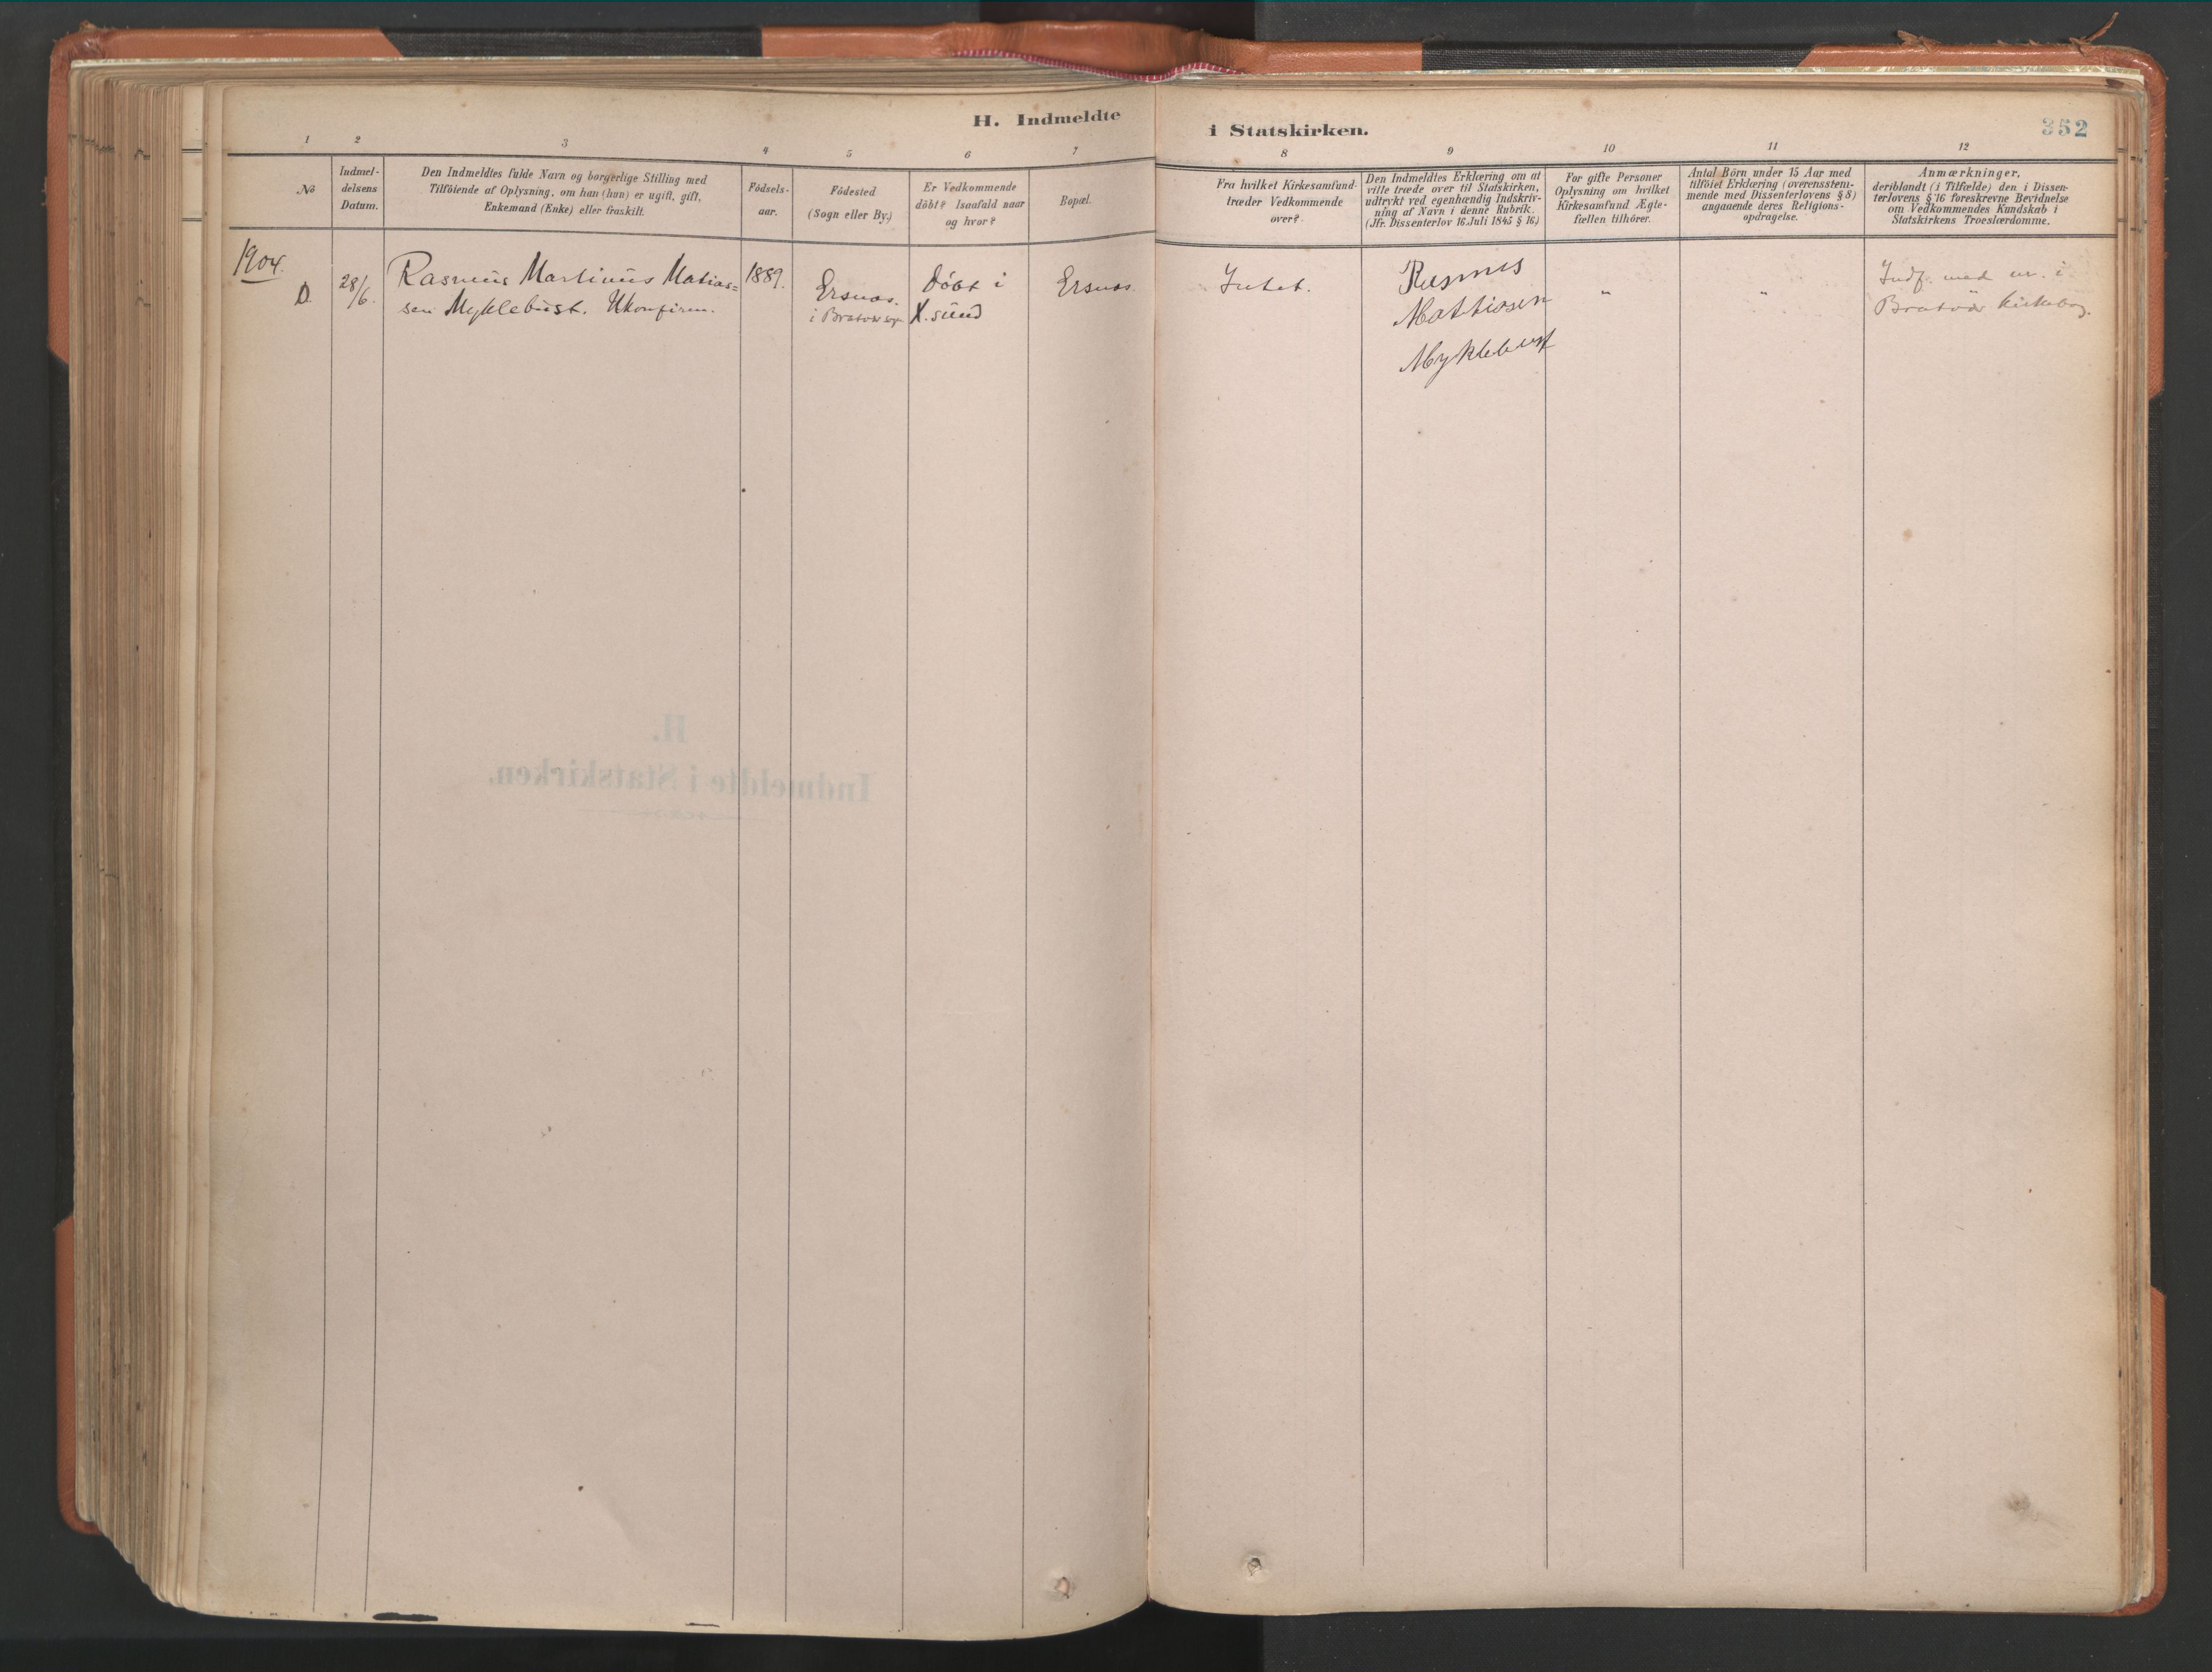 H. Indmeldte
i Statskirken.
352
1
2
3
4
5
6
7
8
9
10
11
12
No
Indmel-
delsens
Datum.
Den Indmeldtes fulde Navn og borgerlige Stilling med
Tilföiende af Oplysning, om han (hun) er ugift, gift,
Enkemand (Enke) eller fraskilt.
Födsels-
aar.
Födested
(Sogn eller By.)
Er Vedkommende
döbt? Isaafald naar
og hvor?
Bopæl.
Fra hvilket Kirkesamfund
træder Vedkommende
over?
Den Indmeldtes Erklæring om at
ville træde over til Statskirken,
udtrykt ved egenhændig Indskriv-
ning af Navn i denne Rubrik.
(Jfr. Dissenterlov 16. Juli 1845 § 16)
For gifte Personer
Oplysning om hvilket
Kirkesamfund Ægte-
fællen tilhörer.
Antal Börn under 15 Aar med
tilföiet Erklæring (overensstem-
mende med Dissenterlovens § 8)
angaaende deres Religions-
opdragelse.
Anmærkninger,
deriblandt (i Tilfælde) den i Dissen-
terlovens § 16 foreskrevne Bevidnelse
om Vedkommendes Kundskab i
Statskirkens Troeslærdomme.
1904.
D.
28/6.
Rasmus Martinus Matias=
sen Myklebust. Ukonfirm.
1889.
Ersnas.
i
Döbt i
X.sund
Ersnas
Intet.
Rasmus
Mathiasen
Myklebust
"
"
Indf. med nr. i
Kirkebog.
H.
Indmeldte i Statskirken.